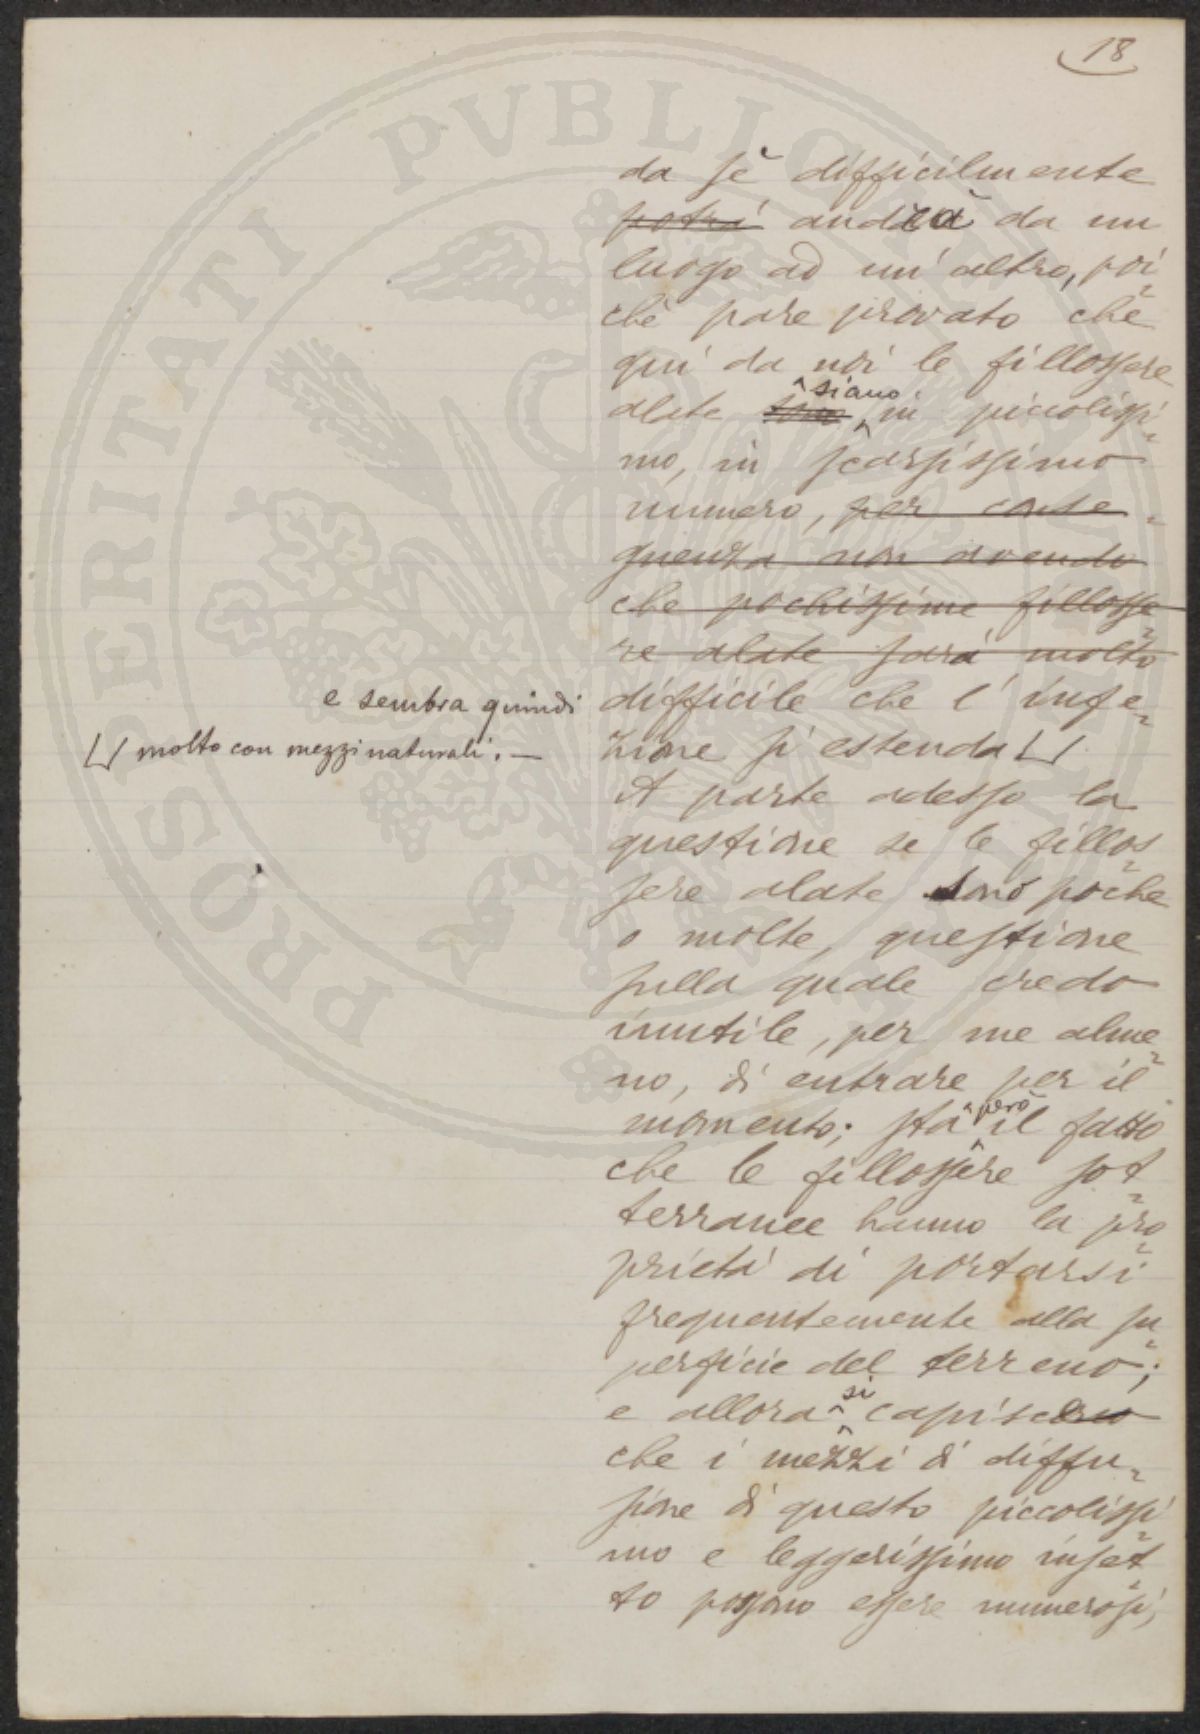 18
da sè difficilmente
potrà andrà da un
luogo ad un' altro, poi
chè pare provato che
qui da noi le fillossere
siano
alate sono in piccolissi
mo, in scarsissimo
numero, per conse
guenza non avendo
che pochissime fillosse
re alate sarà molto
e sembra quindi
difficile che l' infe
zione si estenda
molto con mezzi naturali. —
A parte adesso la
questione se le fillos
sere alate sono poche
o molte, questione
sulla quale credo
inutile, per me alme
no, di entrare per il
però
momento; sta il fatto
che le fillossere sot
terranee hanno la pro
prietà di portarsi
frequentemente alla su
perficie del terreno;
si
e allora capisce
che i mezzi di diffu
sione di questo piccolissi
mo e leggerissimo inset
to possono essere numerosi,
PROSPERITATI PUBLICAE